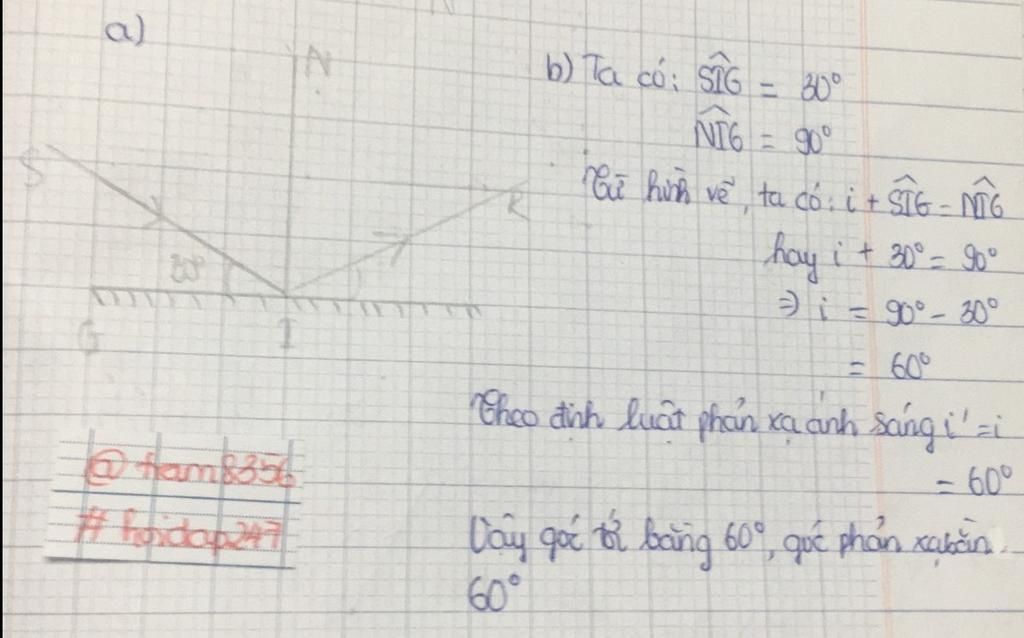 a)
N
S
R
30°
G
I
b) Ta có: SÎG = 30°
NÎG = 90°
Từ hình vẽ, ta có: i + SÎG = NÎG
hay i + 30° = 90°
=> i = 90° - 30°
= 60°
Theo định luật phản xạ ánh sáng i' = i
= 60°
Vậy góc tới bằng 60°, góc phản xạ bằn
60°
# hoidap247